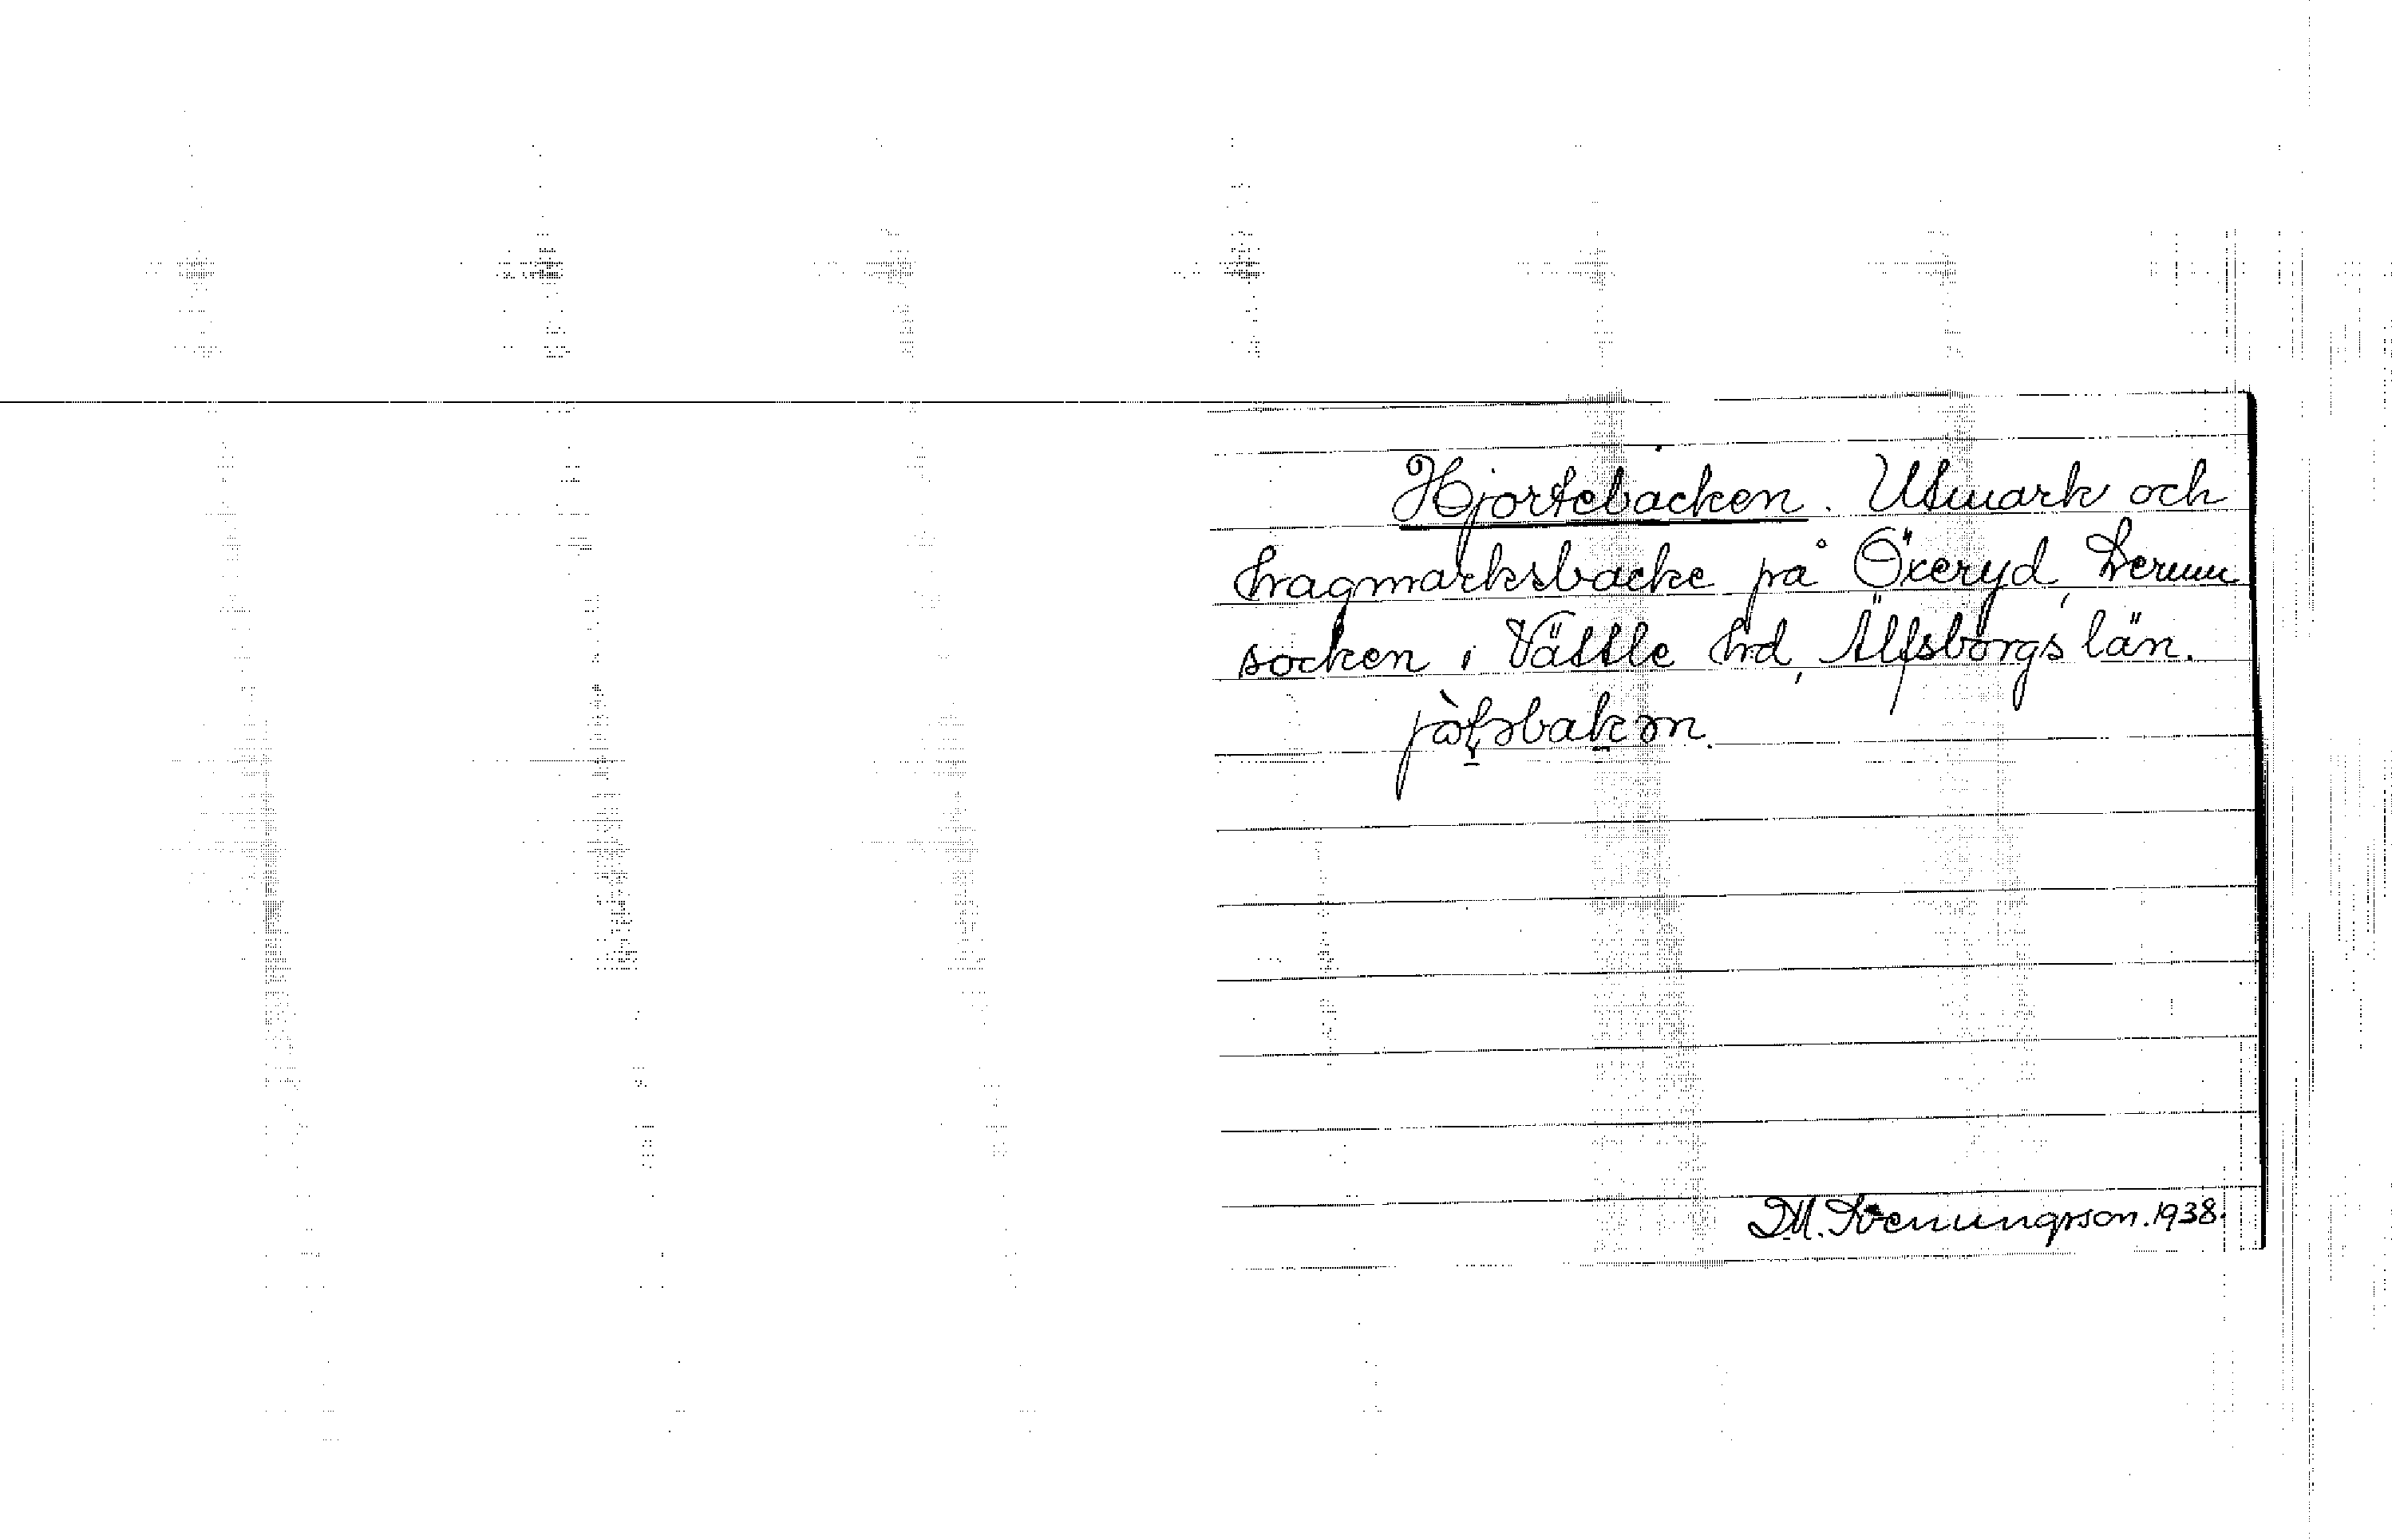 Hjortebacken. Utmark och
hagmarksbacke på Öxeryd, Lerum
socken i Vättle hd, Älfsborgs län.
M. Svenungsson. 1938.